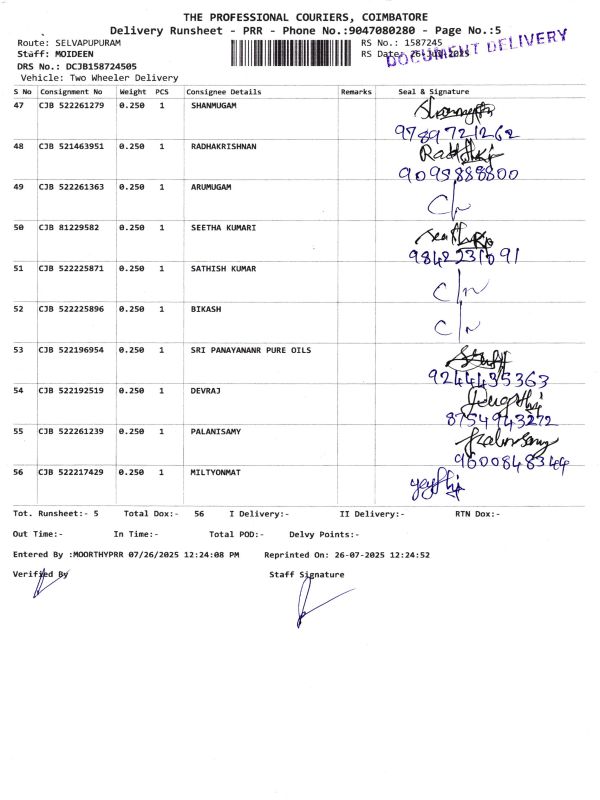 THE PROFESSIONAL COURIERS, COIMBATORE
Delivery Runsheet - PRR - Phone No.:9047080280 - Page No.:5
Route: SELVAPUPURAM RS No.: 1587245
Staff: MOIDEEN RS Date: 26-Jul-2025
DOCUMENT DELIVERY
DRS No.: DCJB158724505
Vehicle: Two Wheeler Delivery
S No Consignment No Weight PCS Consignee Details Remarks Seal & Signature
47 CJB 522261279 0.250 1 SHANMUGAM
9789721262
48 CJB 521463951 0.250 1 RADHAKRISHNAN
9095888800
49 CJB 522261363 0.250 1 ARUMUGAM
C/N
50 CJB 81229582 0.250 1 SEETHA KUMARI
9842231091
51 CJB 522225871 0.250 1 SATHISH KUMAR
C/N
52 CJB 522225896 0.250 1 BIKASH
C/N
53 CJB 522196954 0.250 1 SRI PANAYANANR PURE OILS
9244435363
54 CJB 522192519 0.250 1 DEVRAJ
8754943272
55 CJB 522261239 0.250 1 PALANISAMY
9600848344
56 CJB 522217429 0.250 1 MILTYONMAT
Tot. Runsheet:- 5 Total Dox:- 56 I Delivery:- II Delivery:- RTN Dox:-
Out Time:- In Time:- Total POD:- Delvy Points:-
Entered By :MOORTHYPRR 07/26/2025 12:24:08 PM Reprinted On: 26-07-2025 12:24:52
Verified By Staff Signature